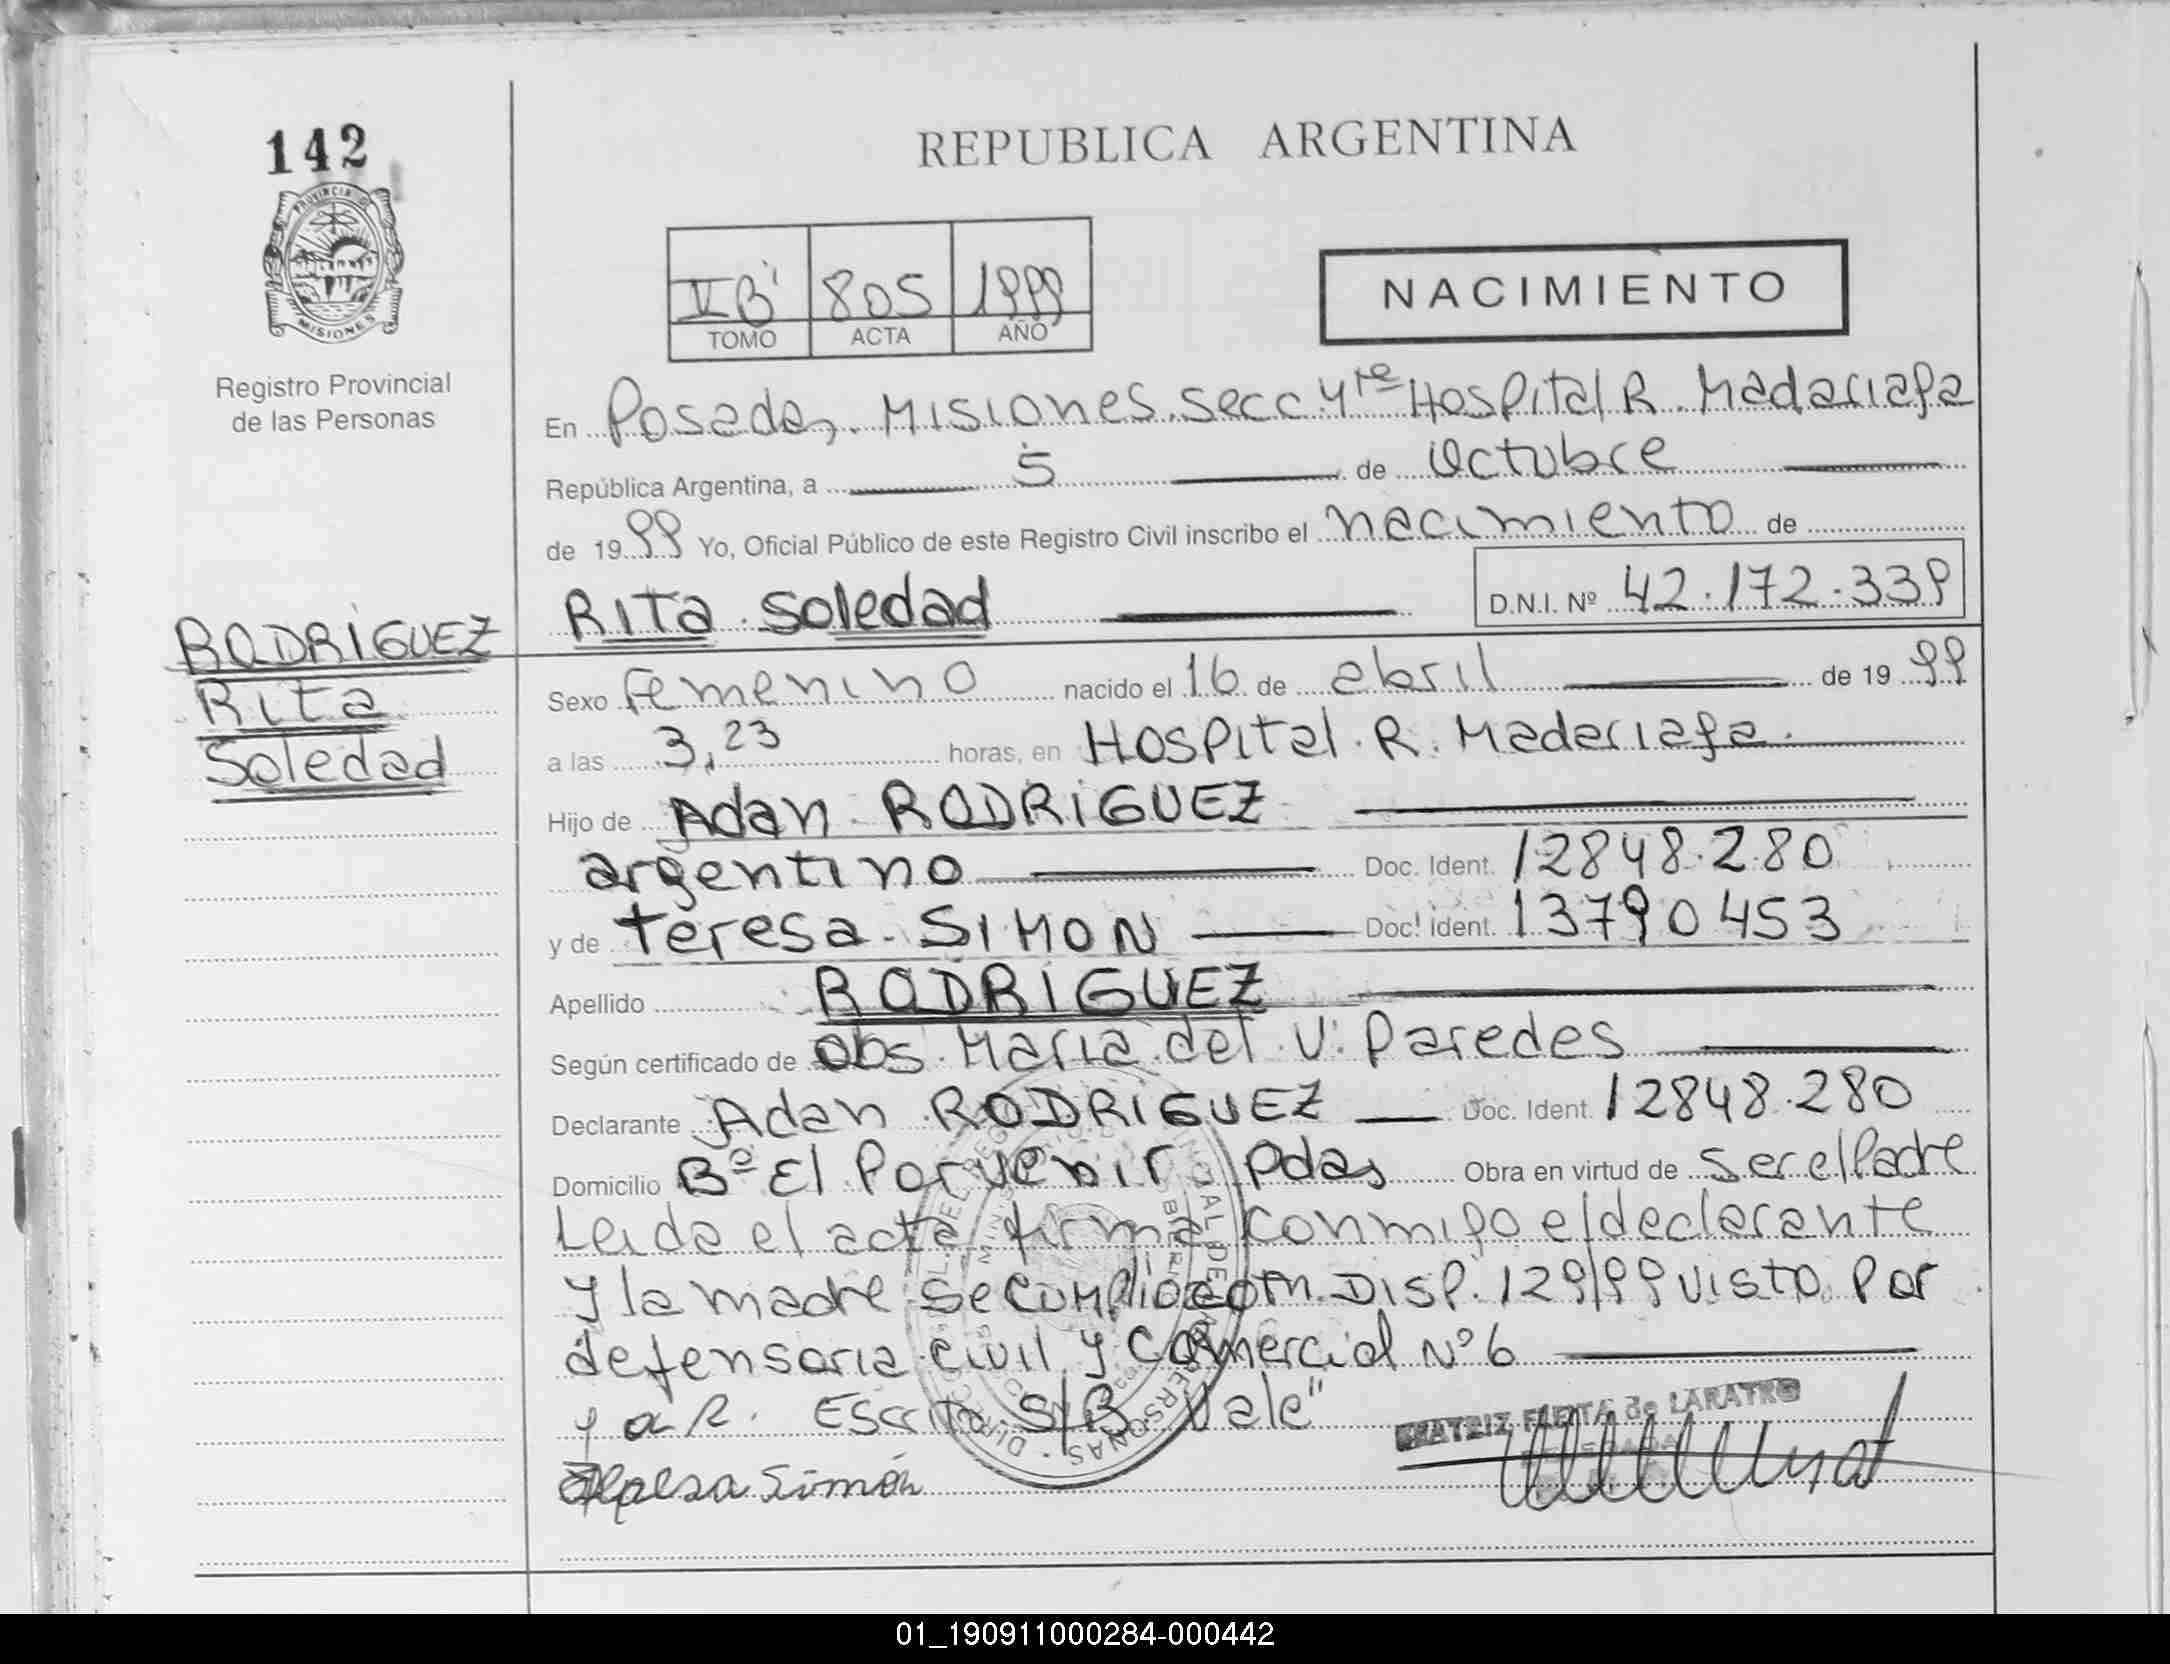 142
PROVINCIA D
MISIONES
Registro Provincial
de las Personas
RODRIGUEZ
Rita
Soledad
REPUBLICA ARGENTINA
NACIMIENTO
II B' 805 1999
TOMO ACTA AÑO
En Posadas, Misiones. secc. 4te Hospital R. Madariaga
República Argentina, a 5 de Octubre
de 1999 Yo, Oficial Público de este Registro Civil inscribo el nacimiento de
RITA Soledad D.N.I. Nº 42.172.339
Sexo Femenino nacido el 16 de abril de 1999
a las 3,23 horas, en Hospital R. Madariaga
Hijo de Adan RODRIGUEZ
argentino Doc. Ident. 12848.280
y de teresa SIMON Doc. Ident. 13790453
Apellido RODRIGUEZ
Según certificado de obs. Maria del V. Paredes
Declarante Adan RODRIGUEZ Doc. Ident. 12848.280
Domicilio Bº El Porvenir Pdas Obra en virtud de ser el Padre
Leida el acta firma conmigo el declarante
y la madre se cumplio con Disp. 129/99 visto por
defensoria civil y comercial Nº 6
Escrito S/R. Vale"
BEATRIZ de LARATRO
Simón
01_190911000284-000442